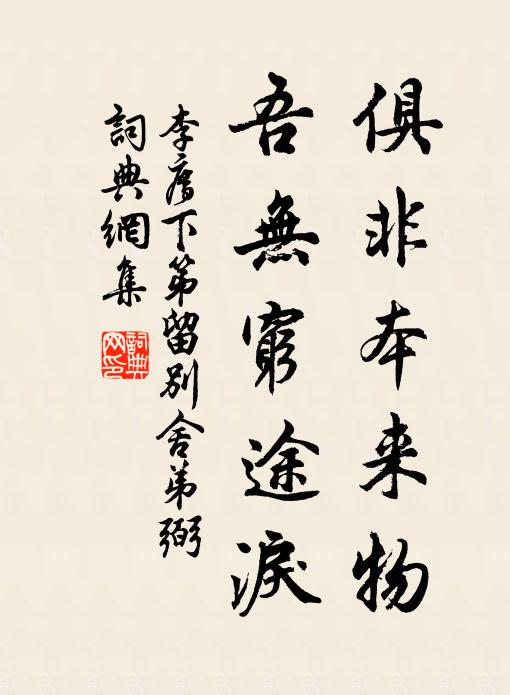 俱非本来物
吾無窮途淚
李廌下第留別舍弟彌
詞典網集
詞典網印